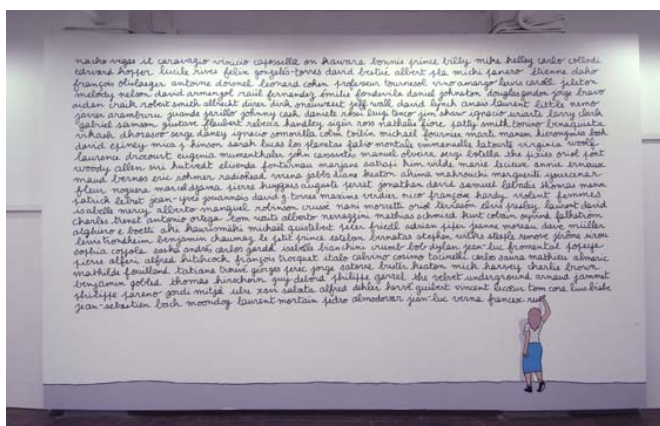 nacho vegas it caravagio vinicio capossella on kawara bonnie prince billy mike kelley carlo collodi
edward hopper lucile rives felix gonzalès-torres david bestué albert pla michi panero étienne daho
françois olislaeger antoine doinel leonard cohen professeur tournesol vino amargo lewis caroll
melody nelson david armengol raül fernandez émilie fondevila daniel johnston douglas gordon jorge bravo
aidan craik robert smith albrecht dürer dirk jeff wall david lynch anaïs laurent little nemo
javier aramburu juande jarillo johnny cash daniele rossi luigi tenco jim shaw ignacio uriarte larry clark
gabriel samson gustave flaubert rebecca handley sigur ross nathalie fiore patty smith
vikash dhorasoo serge daney ignacio somovilla colm toibin michael fournier marti manen hieronymus bosh
david mica p hinson sarah lucas los planetas fabio montale emmanuelle latourte virginia woolf
laurence drocourt eugenia mumenthaler john cassavetes manuel olveira sergi botella the pixies oriol font
woody allen siri hustvedt elisenda fontarnau marjane satrapi kim wilde marie annie ernaux
maud bernos eric rohmer radiohead verena jabls diane keaton ahima mahrouchi marguerite yourcenar
fleur noguera marcel dzama pierre huygues auguste perret jonathan david samuel labadie thomas mann
patrick lebret jean-yves jouannais david g. torres maxime verdier nico françoise hardy violent femmes
isabelle mercy alberto manguel robinson crusoé nani moretti oriol elvis presley laurent david
charles trenet antonio ortega tom waits alberto nerazzini mathias schmied kurt cobain öyvind falhström
alghiero e boetti aki kaurismäki michael quistrebert peter friedl adrian piper jeanne moreau dave müller
lewis trondheim benjamin chaumaz le petit prince esteban stephen wilks
sophia coppola sasha andrès carlos gardel isabella bob dylan jean-luc fromental popeye
pierre alferi alfred hitchcock françois trocquet italo calvino cosimo carlos saura mathieu
mathilde fouilland tatiana trouvé georges perec jorge satorre buster keaton mich harvey charlie brown
benjamin gobled thomas hirschorn guy debord philippe garrel the velvet underground arnaud
philippe parreno jordi mitjà ubu xavi sabata alfred hervé guibert vincent tom cora luis
jean-sebastien bach moondog laurent mortain pedro almodovar jean-luc verna francesc